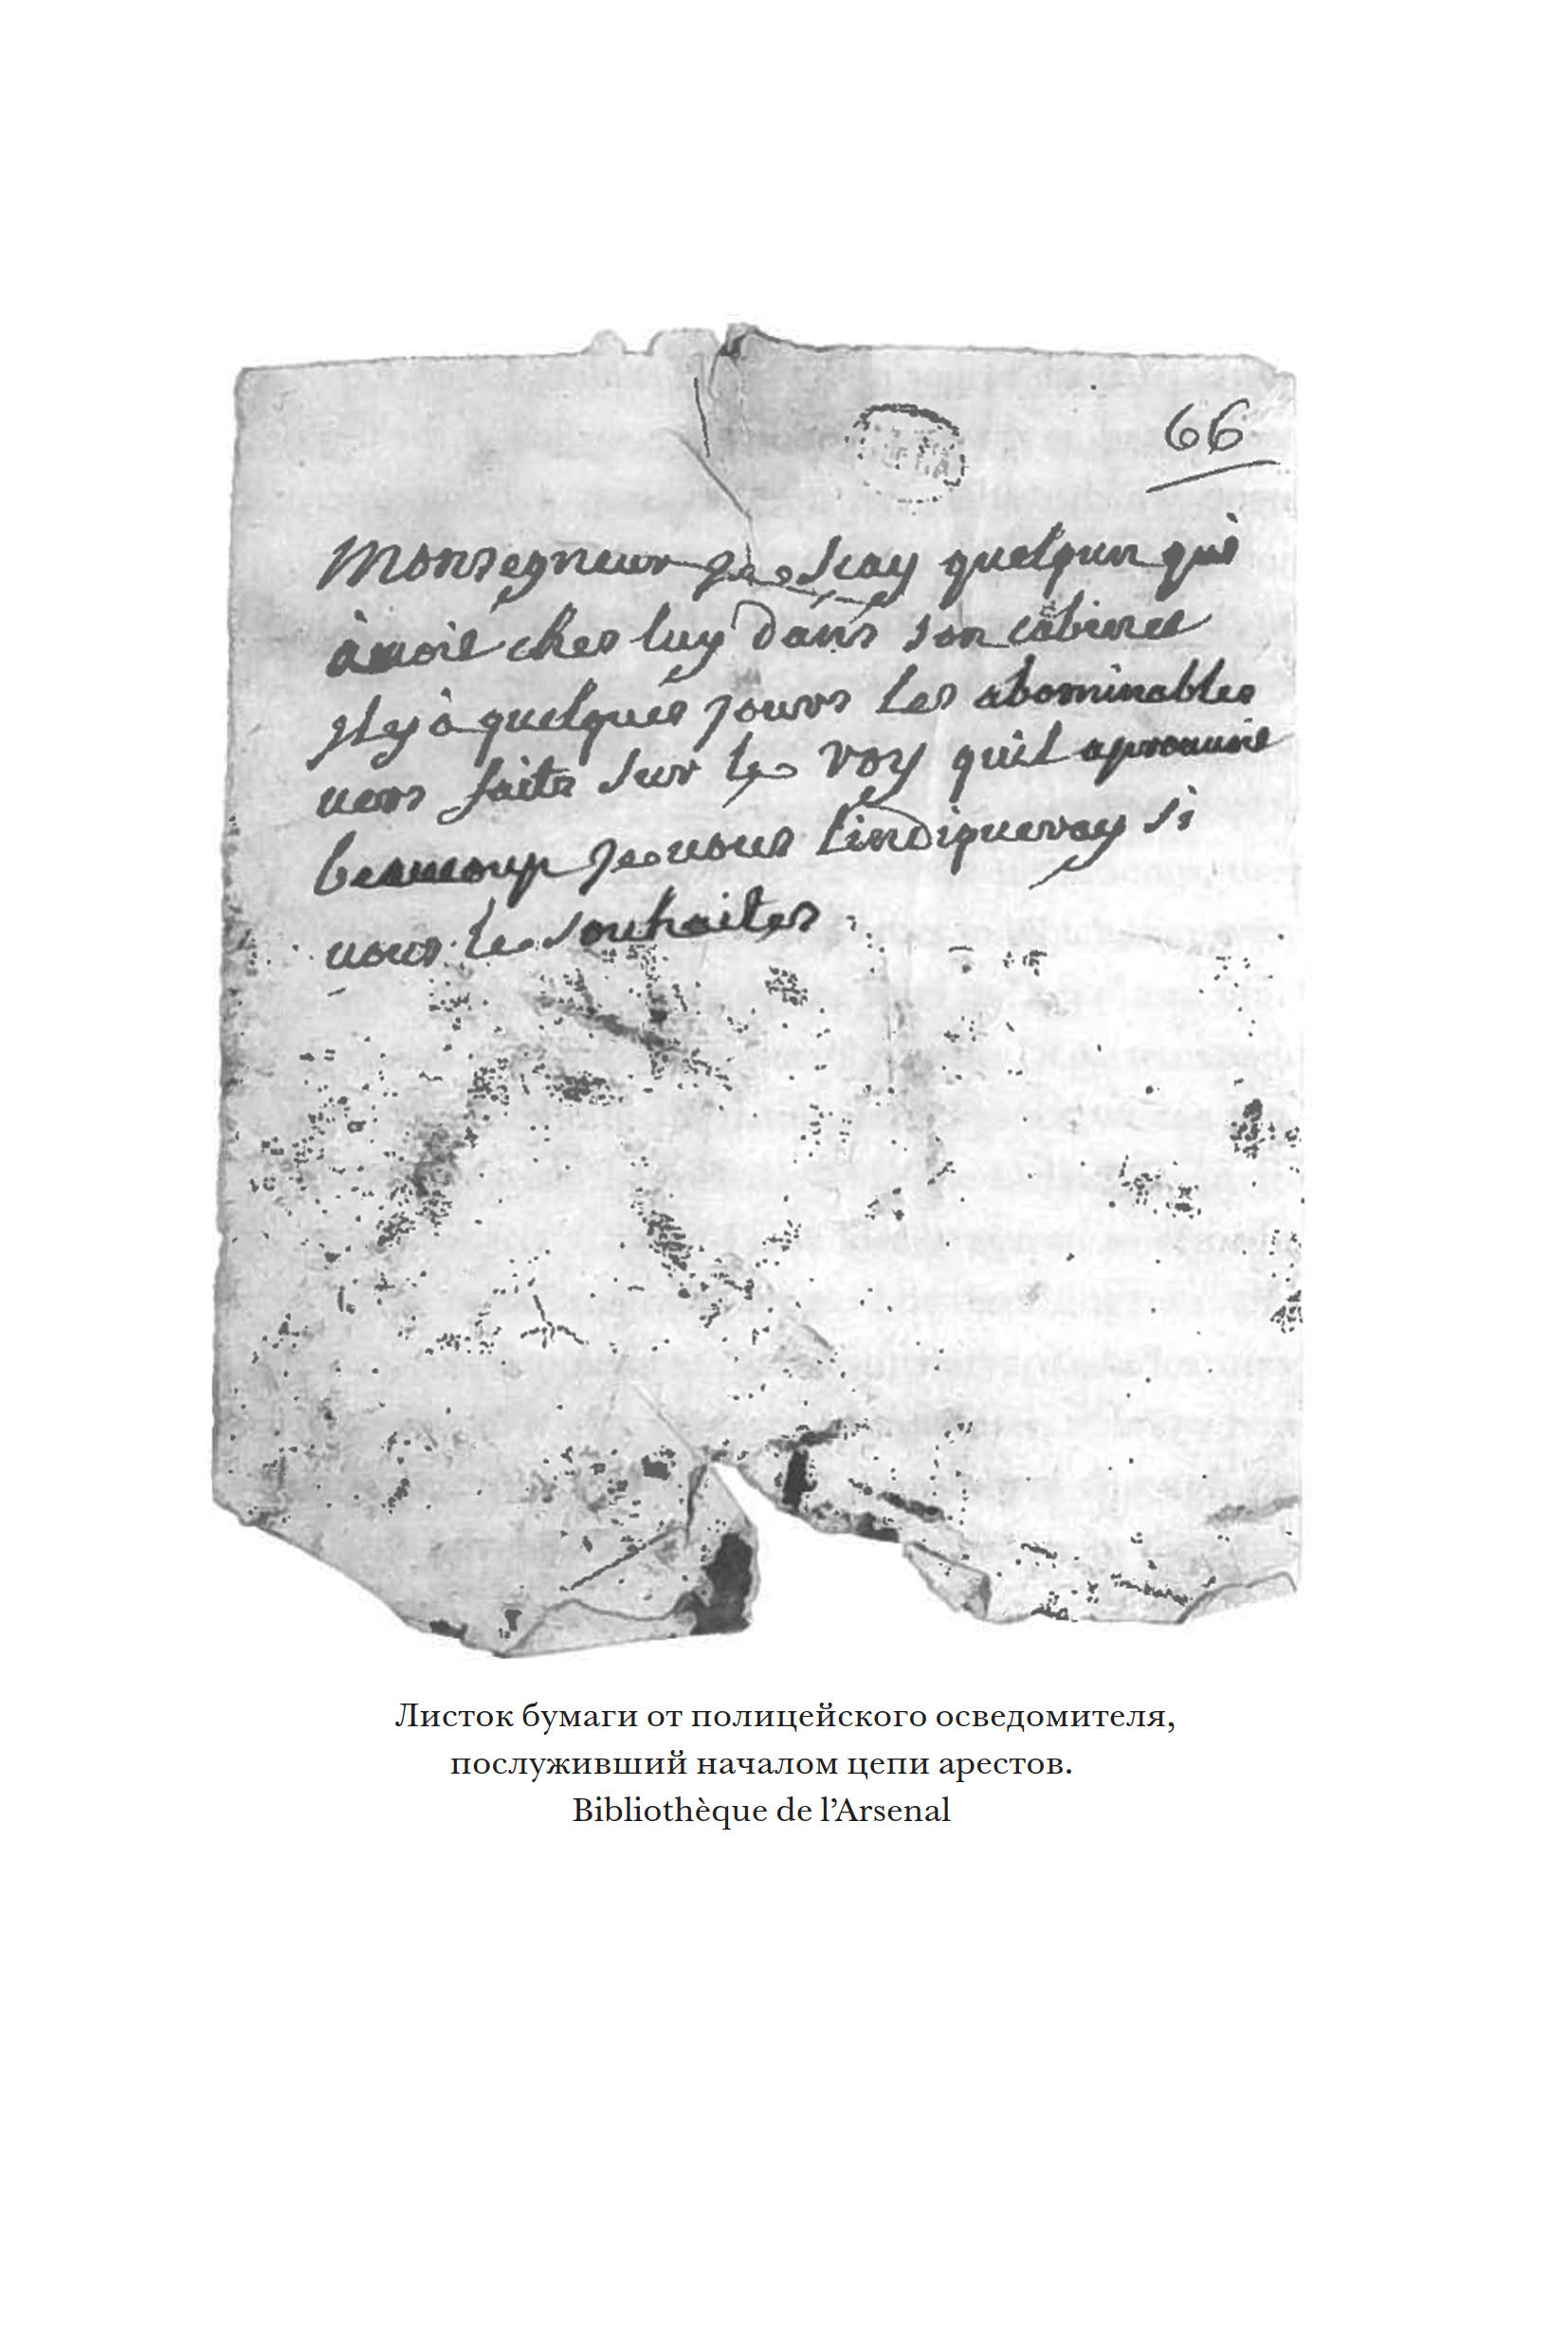 66
Monsegneur Je scay quelqun qui
àvoit ches luy dans son cabinet
jl y à quelques jours les abominables
vers faits sur le roy qu'il aprouvoit
beaucoup je vous l'indiqueray si
vous le souhaites
Листок бумаги от полицейского осведомителя,
послуживший началом цепи арестов.
Bibliothèque de l’Arsenal